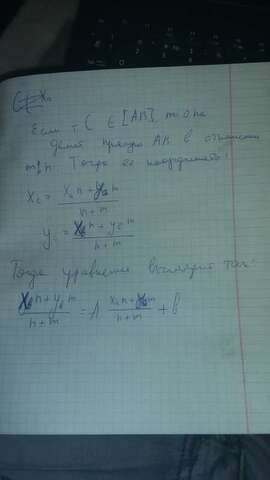 Если т C ∈ [AB], то она
делит прямую AB в отношении
m/n. Тогда её координаты:
x_c = (x_a n + y_a m) / (n + m)
y = (x_b n + y_b m) / (n + m)
Тогда уравнение выглядит так:
(x_b n + y_b m) / (n + m) = A (x_a n + y_a m) / (n + m) + b